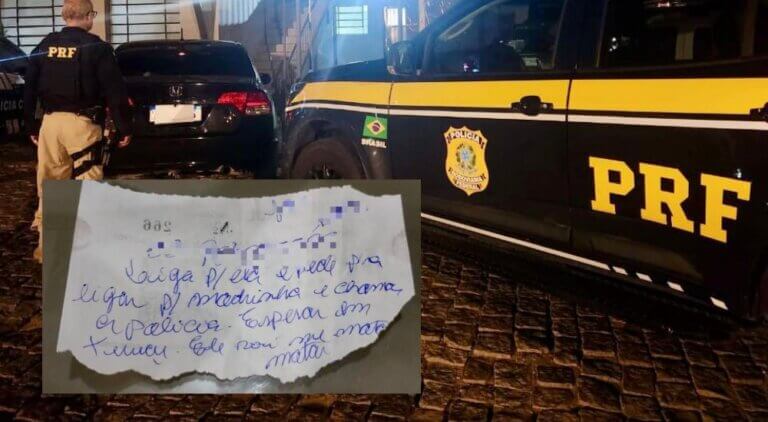 PRF
POLÍCIA C
BRASIL
POLÍCIA
RODOVIÁRIA
FEDERAL
PRF
266
Liga p/ ela e pede pra
ligar p/ madrinha e chama
a policia. Esperar em
Ele vai me mata
matar